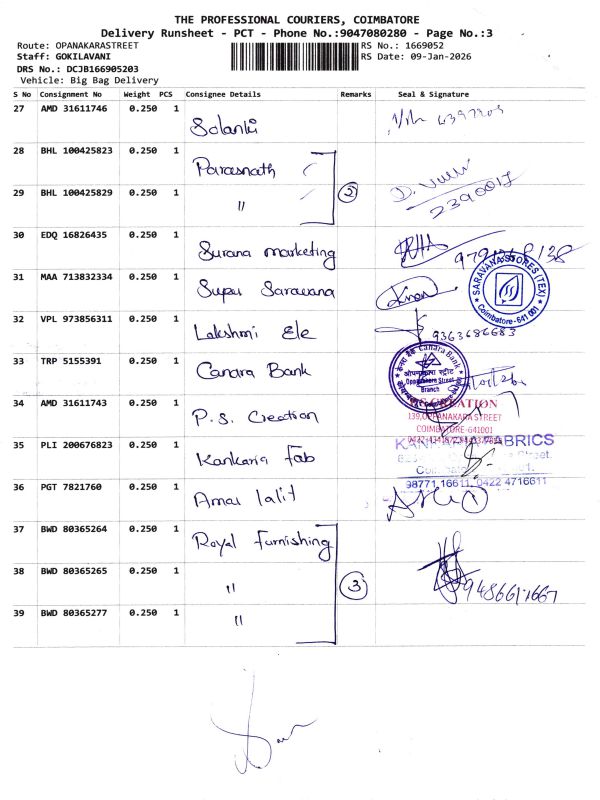 THE PROFESSIONAL COURIERS, COIMBATORE
Delivery Runsheet - PCT - Phone No.:9047080280 - Page No.:3
Route: OPANAKARASTREET
RS No.: 1669052
Staff: GOKILAVANI
RS Date: 09-Jan-2026
DRS No.: DCJB166905203
Vehicle: Big Bag Delivery
S No Consignment No Weight PCS Consignee Details Remarks Seal & Signature
27 AMD 31611746 0.250 1 Solanki
28 BHL 100425823 0.250 1 Parasnath
29 BHL 100425829 0.250 1 " 2 2390017
30 EDQ 16826435 0.250 1 Surana marketing
31 MAA 713832334 0.250 1 Supu Saravana
SARAVANA STORES (TEX)
Coimbatore-641 001
32 VPL 973856311 0.250 1 Lakshmi Ele 9363686683
33 TRP 5155391 0.250 1 Canara Bank
Canara Bank
Oppanakara Street
Branch
34 AMD 31611743 0.250 1 P.S. Creation
CREATION
139,OPPANAKARA STREET
COIMBATORE-641001
35 PLI 200676823 0.250 1 Kankaria Fab
FABRICS
Street.
98771 16611, 0422 4716611
36 PGT 7821760 0.250 1 Amar lalit
37 BWD 80365264 0.250 1 Royal Furnishing
38 BWD 80365265 0.250 1 " 3
39 BWD 80365277 0.250 1 "